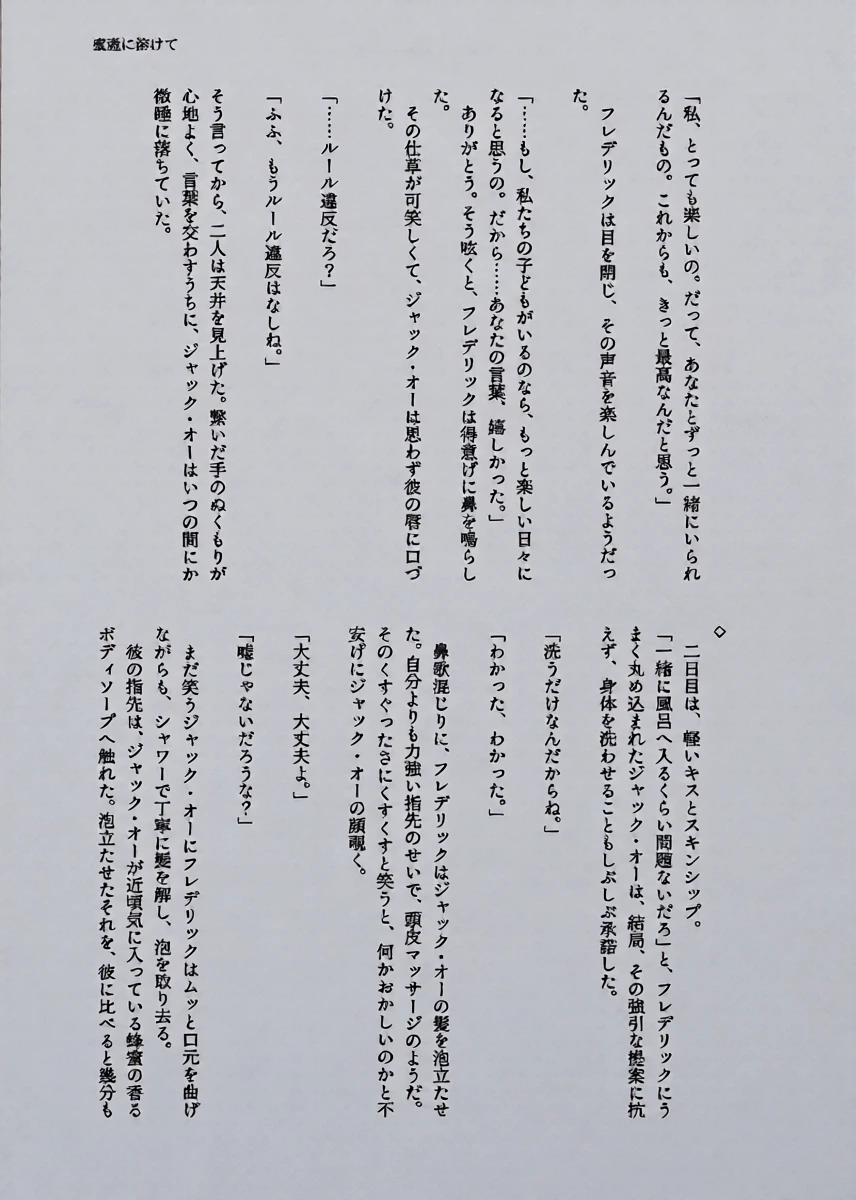 蜜遊に溶けて
「私、とっても楽しいの。だって、あなたとずっと一緒にいられ
るんだもの。これからも、きっと最高なんだと思う。」
フレデリックは目を閉じ、その声音を楽しんでいるようだっ
た。
「……もし、私たちの子どもがいるのなら、もっと楽しい日々に
なると思うの。だから……あなたの言葉、嬉しかった。」
ありがとう。そう呟くと、フレデリックは得意げに鼻を鳴らし
た。
その仕草が可笑しくて、ジャック・オーは思わず彼の唇に口づ
けた。
「……ルール違反だろ？」
「ふふ、もうルール違反はなしね。」
そう言ってから、二人は天井を見上げた。繋いだ手のぬくもりが
心地よく、言葉を交わすうちに、ジャック・オーはいつの間にか
微睡に落ちていた。
◇
二日目は、軽いキスとスキンシップ。
「一緒に風呂へ入るくらい問題ないだろ」と、フレデリックにう
まく丸め込まれたジャック・オーは、結局、その強引な提案に抗
えず、身体を洗わせることもしぶしぶ承諾した。
「洗うだけなんだからね。」
「わかった、わかった。」
鼻歌混じりに、フレデリックはジャック・オーの髪を泡立たせ
た。自分よりも力強い指先のせいで、頭皮マッサージのようだ。
そのくすぐったさにくすくすと笑うと、何かおかしいのかと不
安げにジャック・オーの顔覗く。
「大丈夫、大丈夫よ。」
「嘘じゃないだろうな？」
まだ笑うジャック・オーにフレデリックはムッと口元を曲げ
ながらも、シャワーで丁寧に髪を解し、泡を取り去る。
彼の指先は、ジャック・オーが近頃気に入っている蜂蜜の香る
ボディソープへ触れた。泡立たせたそれを、彼に比べると幾分も